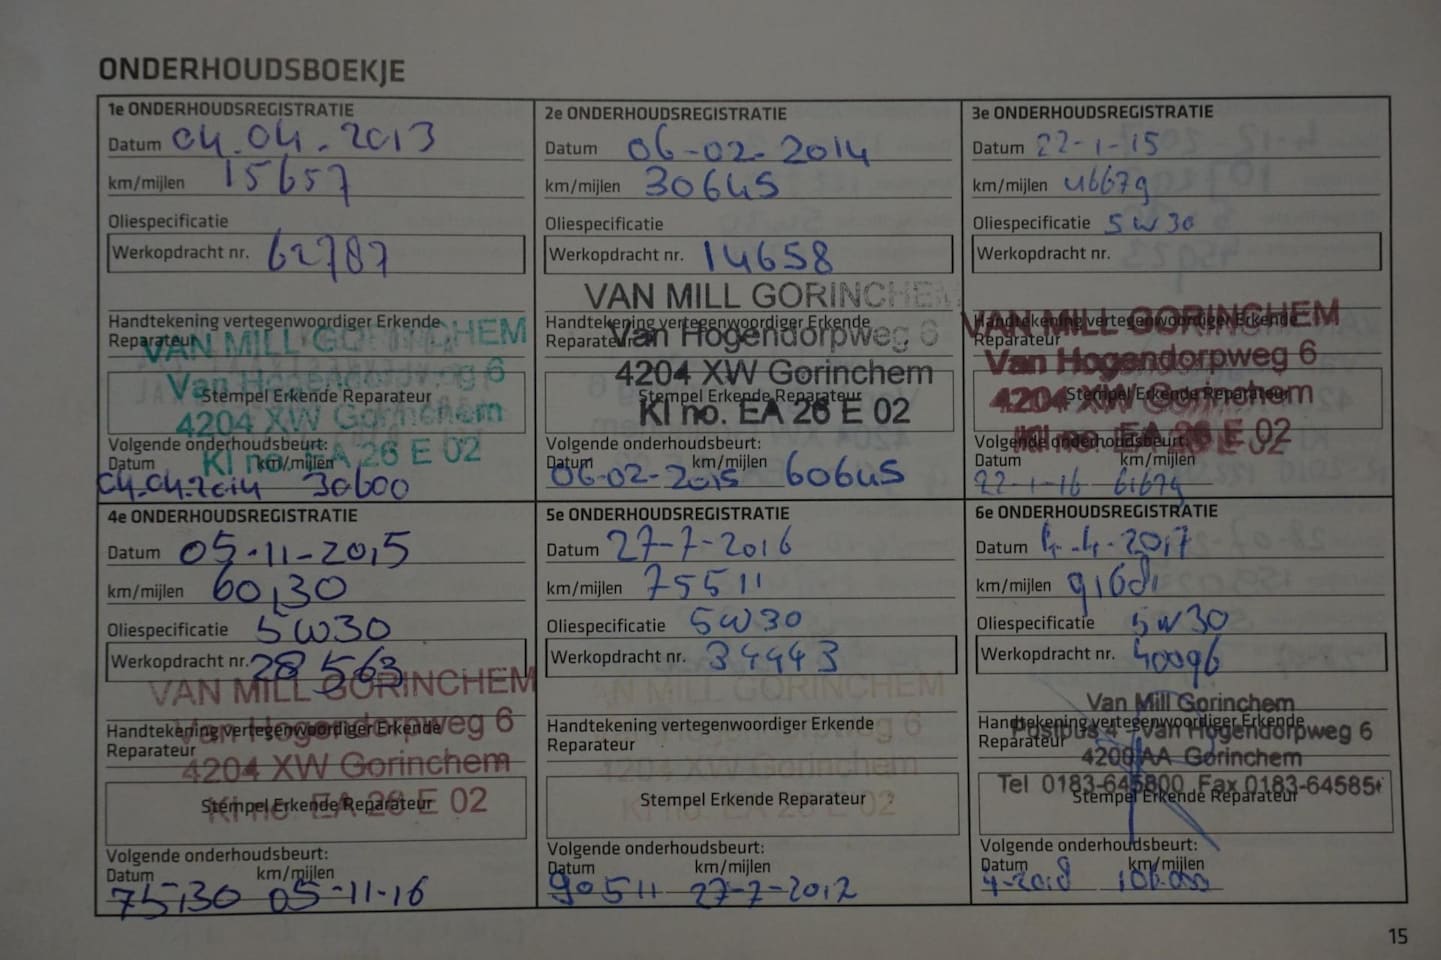 ONDERHOUDSBOEKJE
1e ONDERHOUDSREGISTRATIE
Datum 04.04.2013
km/mijlen 15657
Oliespecificatie
Werkopdracht nr. 62787
Handtekening vertegenwoordiger Erkende
Reparateur
VAN MILL GORINCHEM
Van Hogendorpweg 6
Stempel Erkende Reparateur
4204 XW Gorinchem
Kl no. EA 26 E 02
Volgende onderhoudsbeurt:
Datum km/mijlen
04.04.2014 30600
2e ONDERHOUDSREGISTRATIE
Datum 06-02-2014
km/mijlen 30645
Oliespecificatie
Werkopdracht nr. 14658
VAN MILL GORINCHEM
Handtekening vertegenwoordiger Erkende
Reparateur
Van Hogendorpweg 6
4204 XW Gorinchem
Stempel Erkende Reparateur
Kl no. EA 26 E 02
Volgende onderhoudsbeurt:
Datum km/mijlen
06-02-2015 60645
3e ONDERHOUDSREGISTRATIE
Datum 22-1-15
km/mijlen 46679
Oliespecificatie 5W30
Werkopdracht nr.
VAN MILL GORINCHEM
Handtekening vertegenwoordiger Erkende
Reparateur
Van Hogendorpweg 6
4204 XW Gorinchem
Stempel Erkende Reparateur
Kl no. EA 26 E 02
Volgende onderhoudsbeurt:
Datum km/mijlen
22-1-16 61679
4e ONDERHOUDSREGISTRATIE
Datum 05-11-2015
km/mijlen 60130
Oliespecificatie 5W30
Werkopdracht nr. 28563
VAN MILL GORINCHEM
Van Hogendorpweg 6
Handtekening vertegenwoordiger Erkende
Reparateur
4204 XW Gorinchem
Stempel Erkende Reparateur
Kl no. EA 26 E 02
Volgende onderhoudsbeurt:
Datum km/mijlen
75130 05-11-16
5e ONDERHOUDSREGISTRATIE
Datum 27-7-2016
km/mijlen 75511
Oliespecificatie 5W30
Werkopdracht nr. 34443
VAN MILL GORINCHEM
Handtekening vertegenwoordiger Erkende
Reparateur
Van Hogendorpweg 6
4204 XW Gorinchem
Stempel Erkende Reparateur
Kl no. EA 26 E 02
Volgende onderhoudsbeurt:
Datum km/mijlen
90511 27-7-2012
6e ONDERHOUDSREGISTRATIE
Datum 4-4-2017
km/mijlen
Oliespecificatie 5W30
Werkopdracht nr. 40096
Van Mill Gorinchem
Handtekening vertegenwoordiger Erkende
Reparateur
Postbus 4 - Van Hogendorpweg 6
4200 AA Gorinchem
Tel 0183-645800 Fax 0183-64585
Stempel Erkende Reparateur
Volgende onderhoudsbeurt:
Datum km/mijlen
4-2018 106.000
15